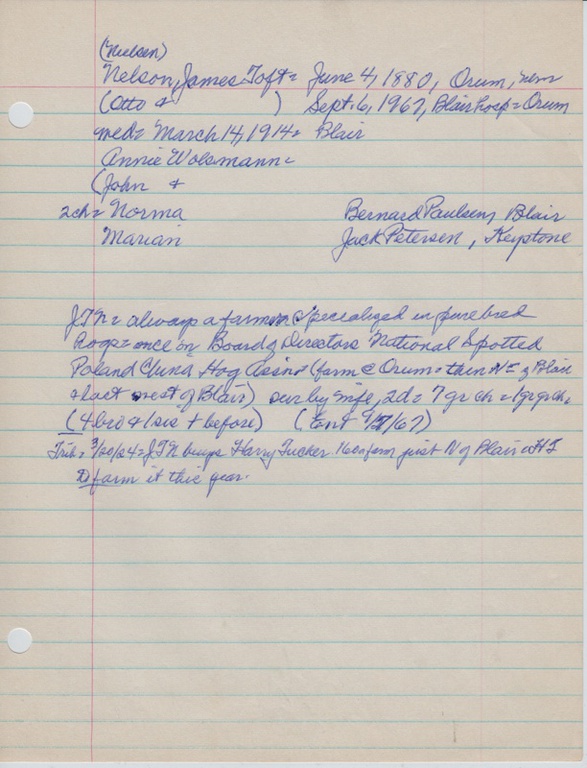 (Nielsen)
Nelson, James Toft = June 4, 1880, Orum, 
(Otto & ) Sept. 6, 1967, Blair hosp = Orum
med = March 14, 1914 = Blair
Annie Wolsmann =
(John &
2ch = Norma Bernard Paulsen, Blair
Marian Jack Petersen, Keystone
JTN = always a farmer specialized in purebred
hogs = once on Board of Directors National Spotted
Poland China Hog Assn = (farm @ Orum = then N = of Blair
& last west of Blair) sur by wife, 2d = 7 gr ch = 1 gr gr ch.
(4 bro & 1 sis + before) (Ent /67)
Trib = 3/20/24 = JTN buys Harry Tucker 160a farm just N of Blair
farm it this year.